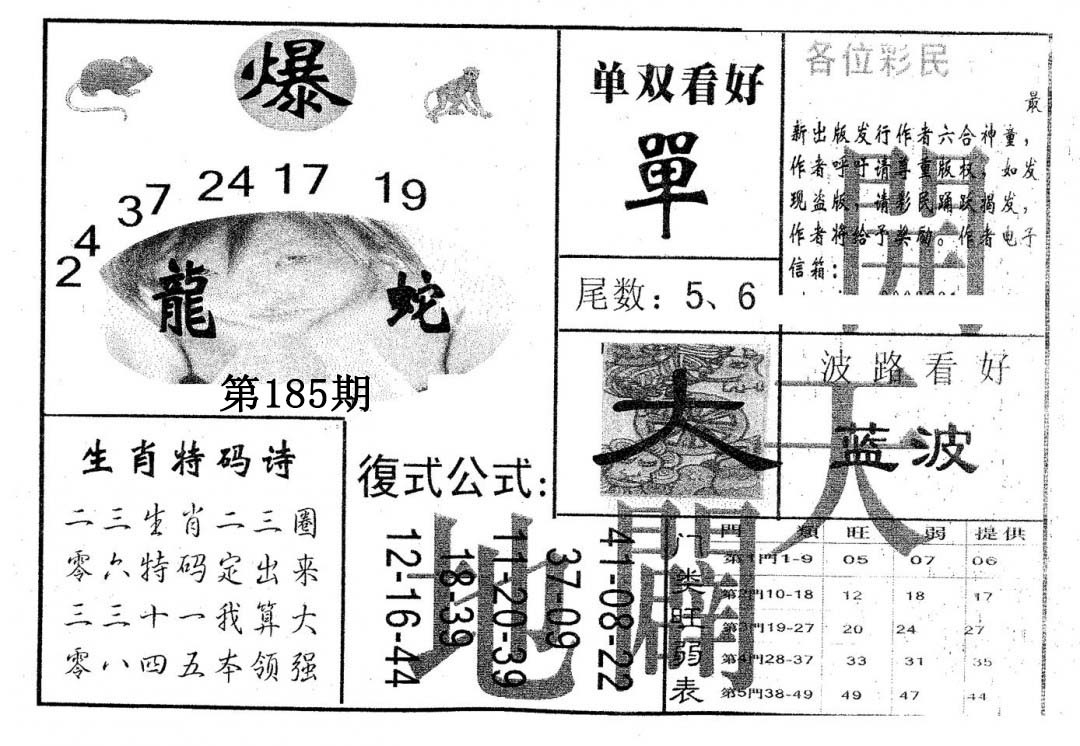 爆
24
37
24
17
19
龍
蛇
第185期
单双看好
單
尾数：5、6
各位彩民
最
新出版发行作者六合神童，
作者呼吁请尊重版权，如发
现盗版，请彩民踊跃揭发，
作者将给予奖励。作者电子
信箱：
開
天
地
闢
大
波路看好
蓝波
生肖特码诗
二三生肖二三圈
零六特码定出来
三三十一我算大
零八四五本领强
復式公式：
41-08-22
37-09
11-20-39
18-39
12-16-44
门类旺弱表
門 類 旺 弱 提供
第1門1-9 05 07 06
第2門10-18 12 18 17
第3門19-27 20 24 27
第4門28-37 33 31 35
第5門38-49 49 47 44